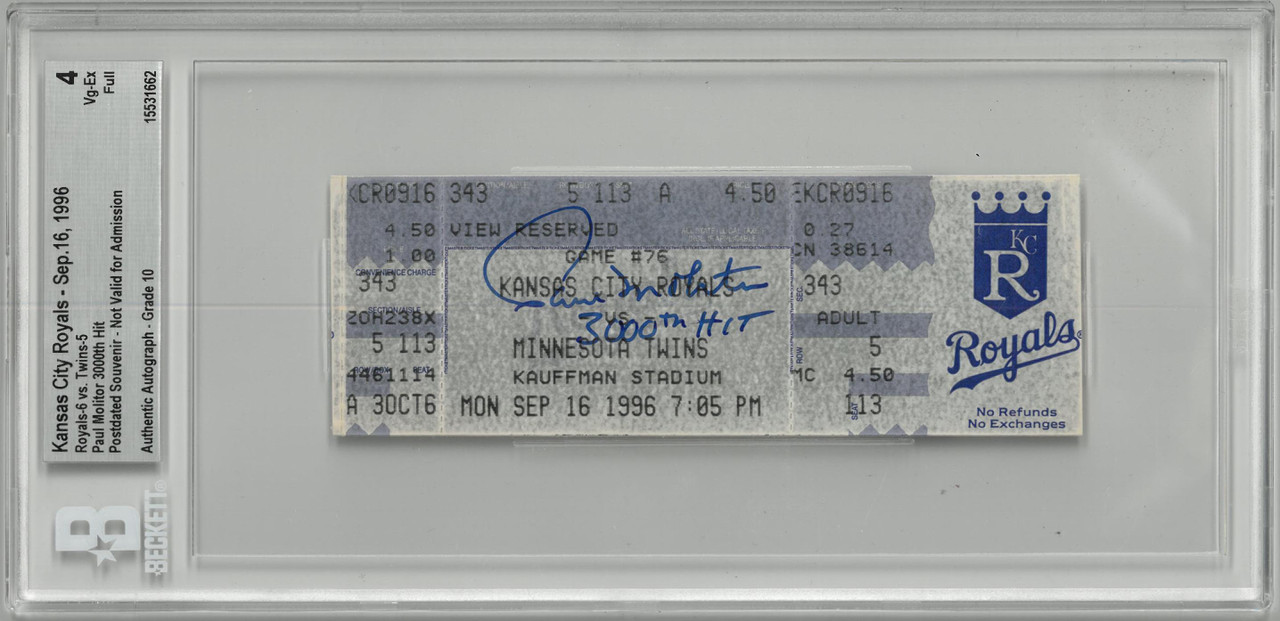 Kansas City Royals - Sep.16, 1996
Royals-6 vs. Twins-5
Paul Molitor 3000th Hit
Postdated Souvenir - Not Valid for Admission
Authentic Autograph - Grade 10
4
Vg-Ex
Full
15531662
B
BECKETT
KCR0916 343 5 113 A 4.50 EKCR0916
4.50 VIEW RESERVED 0 27
1.00 GAME #76 CN 38614
CONVENIENCE CHARGE
343 KANSAS CITY ROYALS SEC. 343
Paul Molitor
3000th HIT
SECTION/AISLE
20H238X VS ADULT
5 113 MINNESOTA TWINS ROW 5
ROW/BOX SEAT
4461114 KAUFFMAN STADIUM MC 4.50
A 3OCT6 MON SEP 16 1996 7:05 PM SEAT 113
KC
R
Royals
No Refunds
No Exchanges